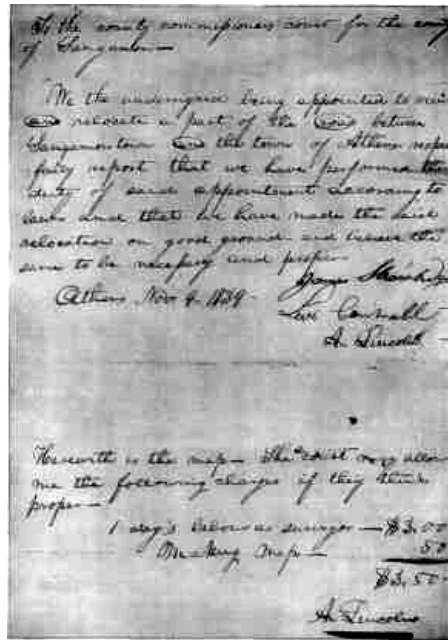 To the county commissioners court for the county
of Sangamon—
We the undersigned being appointed to view
and relocate a part of the road between
Sangamontown and the town of Athens respect
fuly report that we have performed the
duty of said appointment according to
law and that we have made the said
relocation on good ground and believe the
same to be necessary and proper
James
Athens Nov 4. 1834—
Levi Cantrall
A. Lincoln
Herewith is the map— The court may allow
me the following charges if they think
proper—
1 day's labour as surveyor — $3.00
Making map — 50
$3.50
A. Lincoln